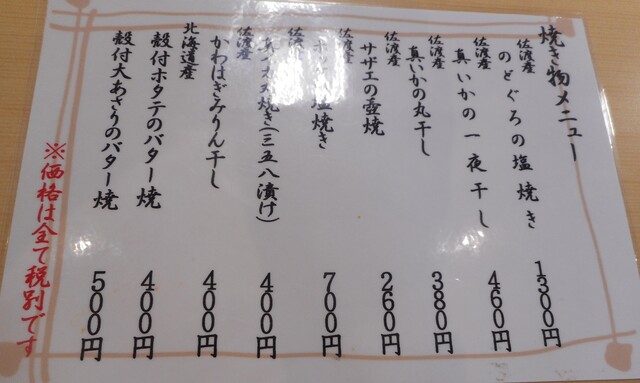 焼き物メニュー
佐渡産
のどぐろの塩焼き 1300円
佐渡産
真いかの一夜干し 460円
佐渡産
真いかの丸干し 380円
佐渡産
サザエの壺焼 260円
佐渡産
塩焼き 700円
佐渡産
焼き(三五八漬け) 400円
佐渡産
かわはぎみりん干し 400円
北海道産
殻付ホタテのバター焼 400円
殻付大あさりのバター焼 500円
※価格は全て税別です